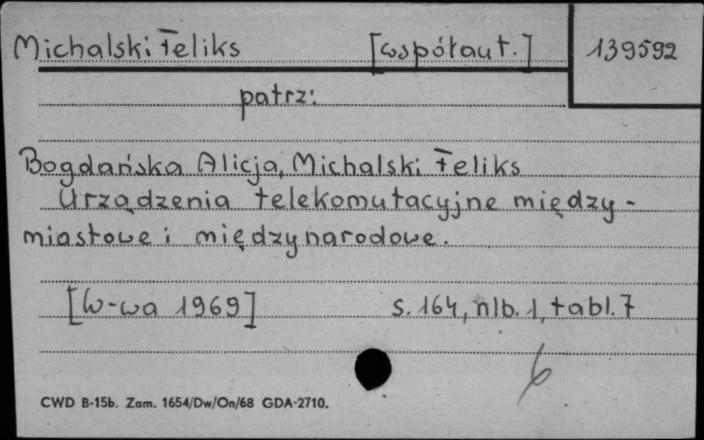 Michalski Feliks [współaut.] 139592
patrz:
Bogdańska Alicja, Michalski Feliks
Urządzenia telekomutacyjne między-
miastowe i międzynarodowe.
[W-wa 1969] s. 164, nlb. 1, tabl. 7
6
CWD B-15b. Zam. 1654/Dw/On/68 GDA-2710.